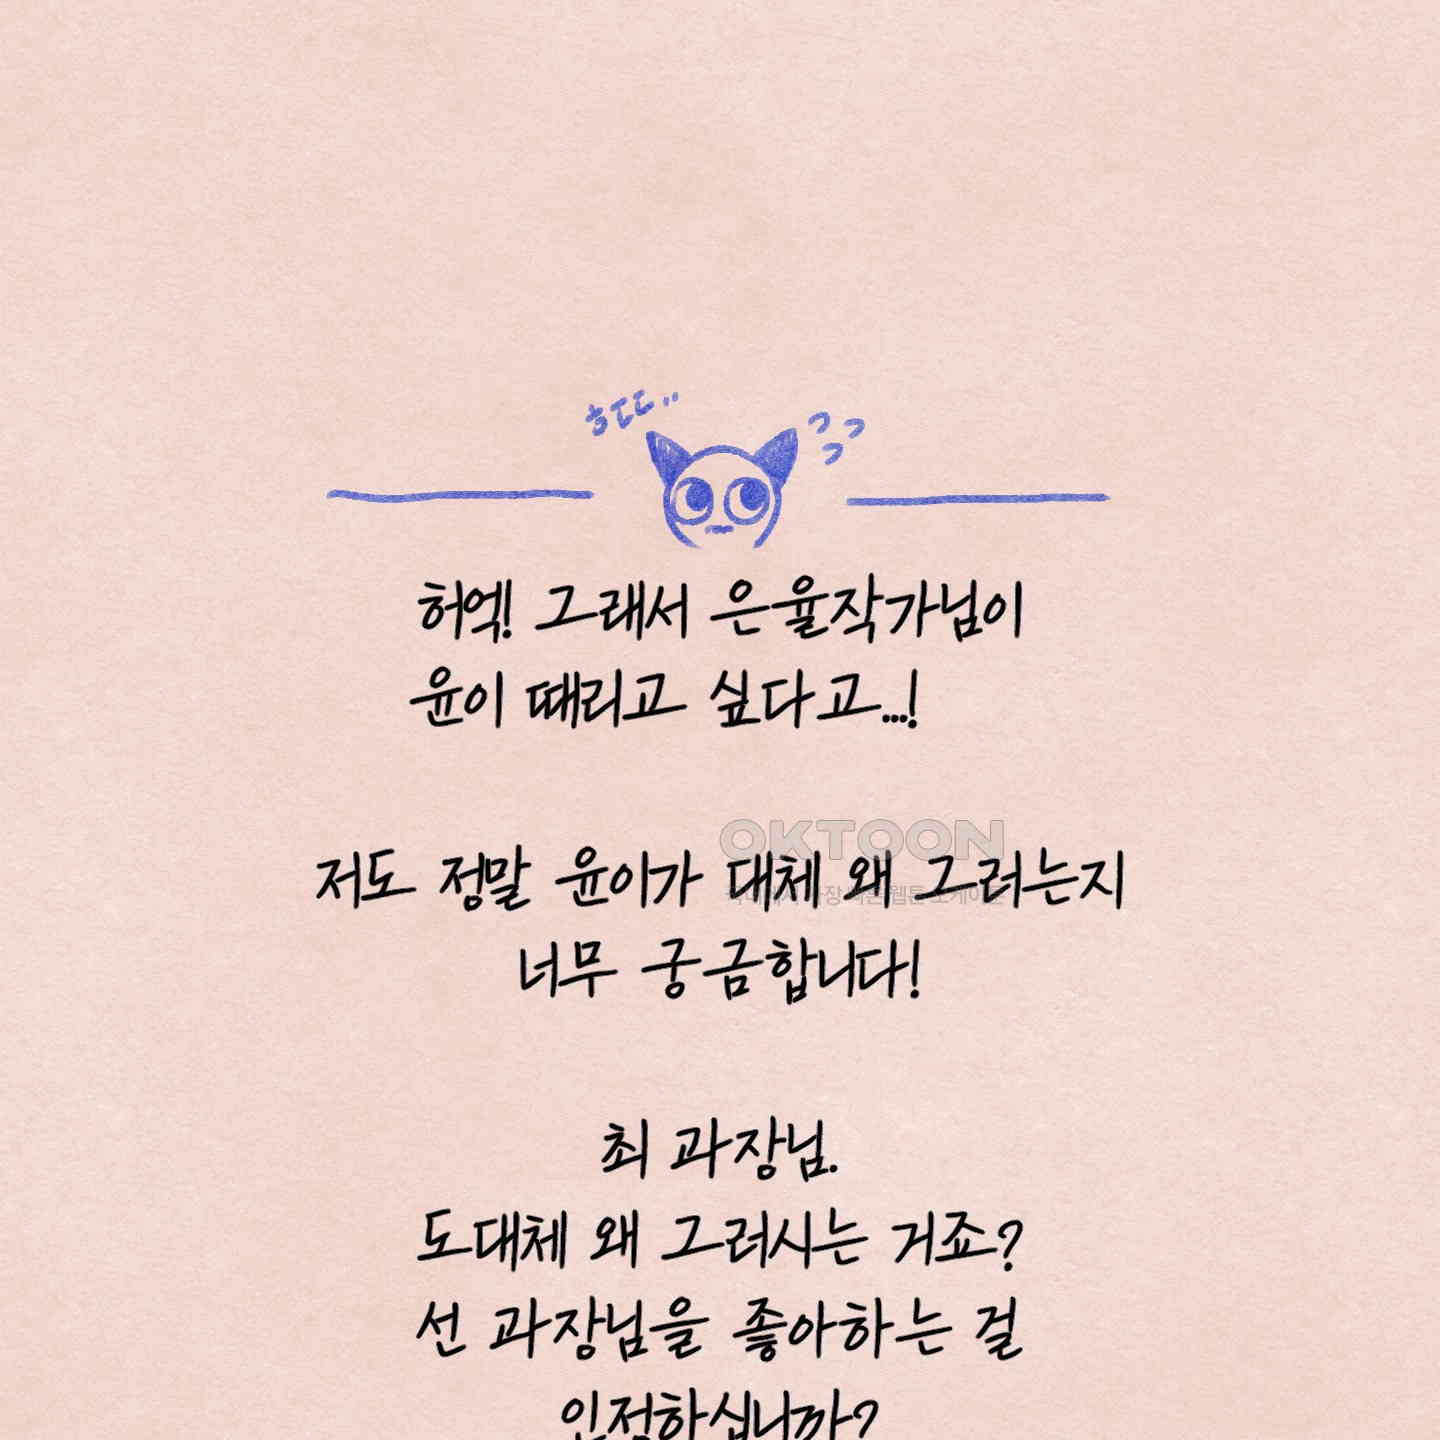 ㅎㄷㄷ..
ㅋㅋ
ㅋ
허억! 그래서 은율작가님이
윤이 때리고 싶다고...!
OKTOON
저도 정말 윤이가 대체 왜 그러는지
너무 궁금합니다!
최 과장님.
도대체 왜 그러시는 거죠?
선 과장님을 좋아하는 걸
인정하십니까?